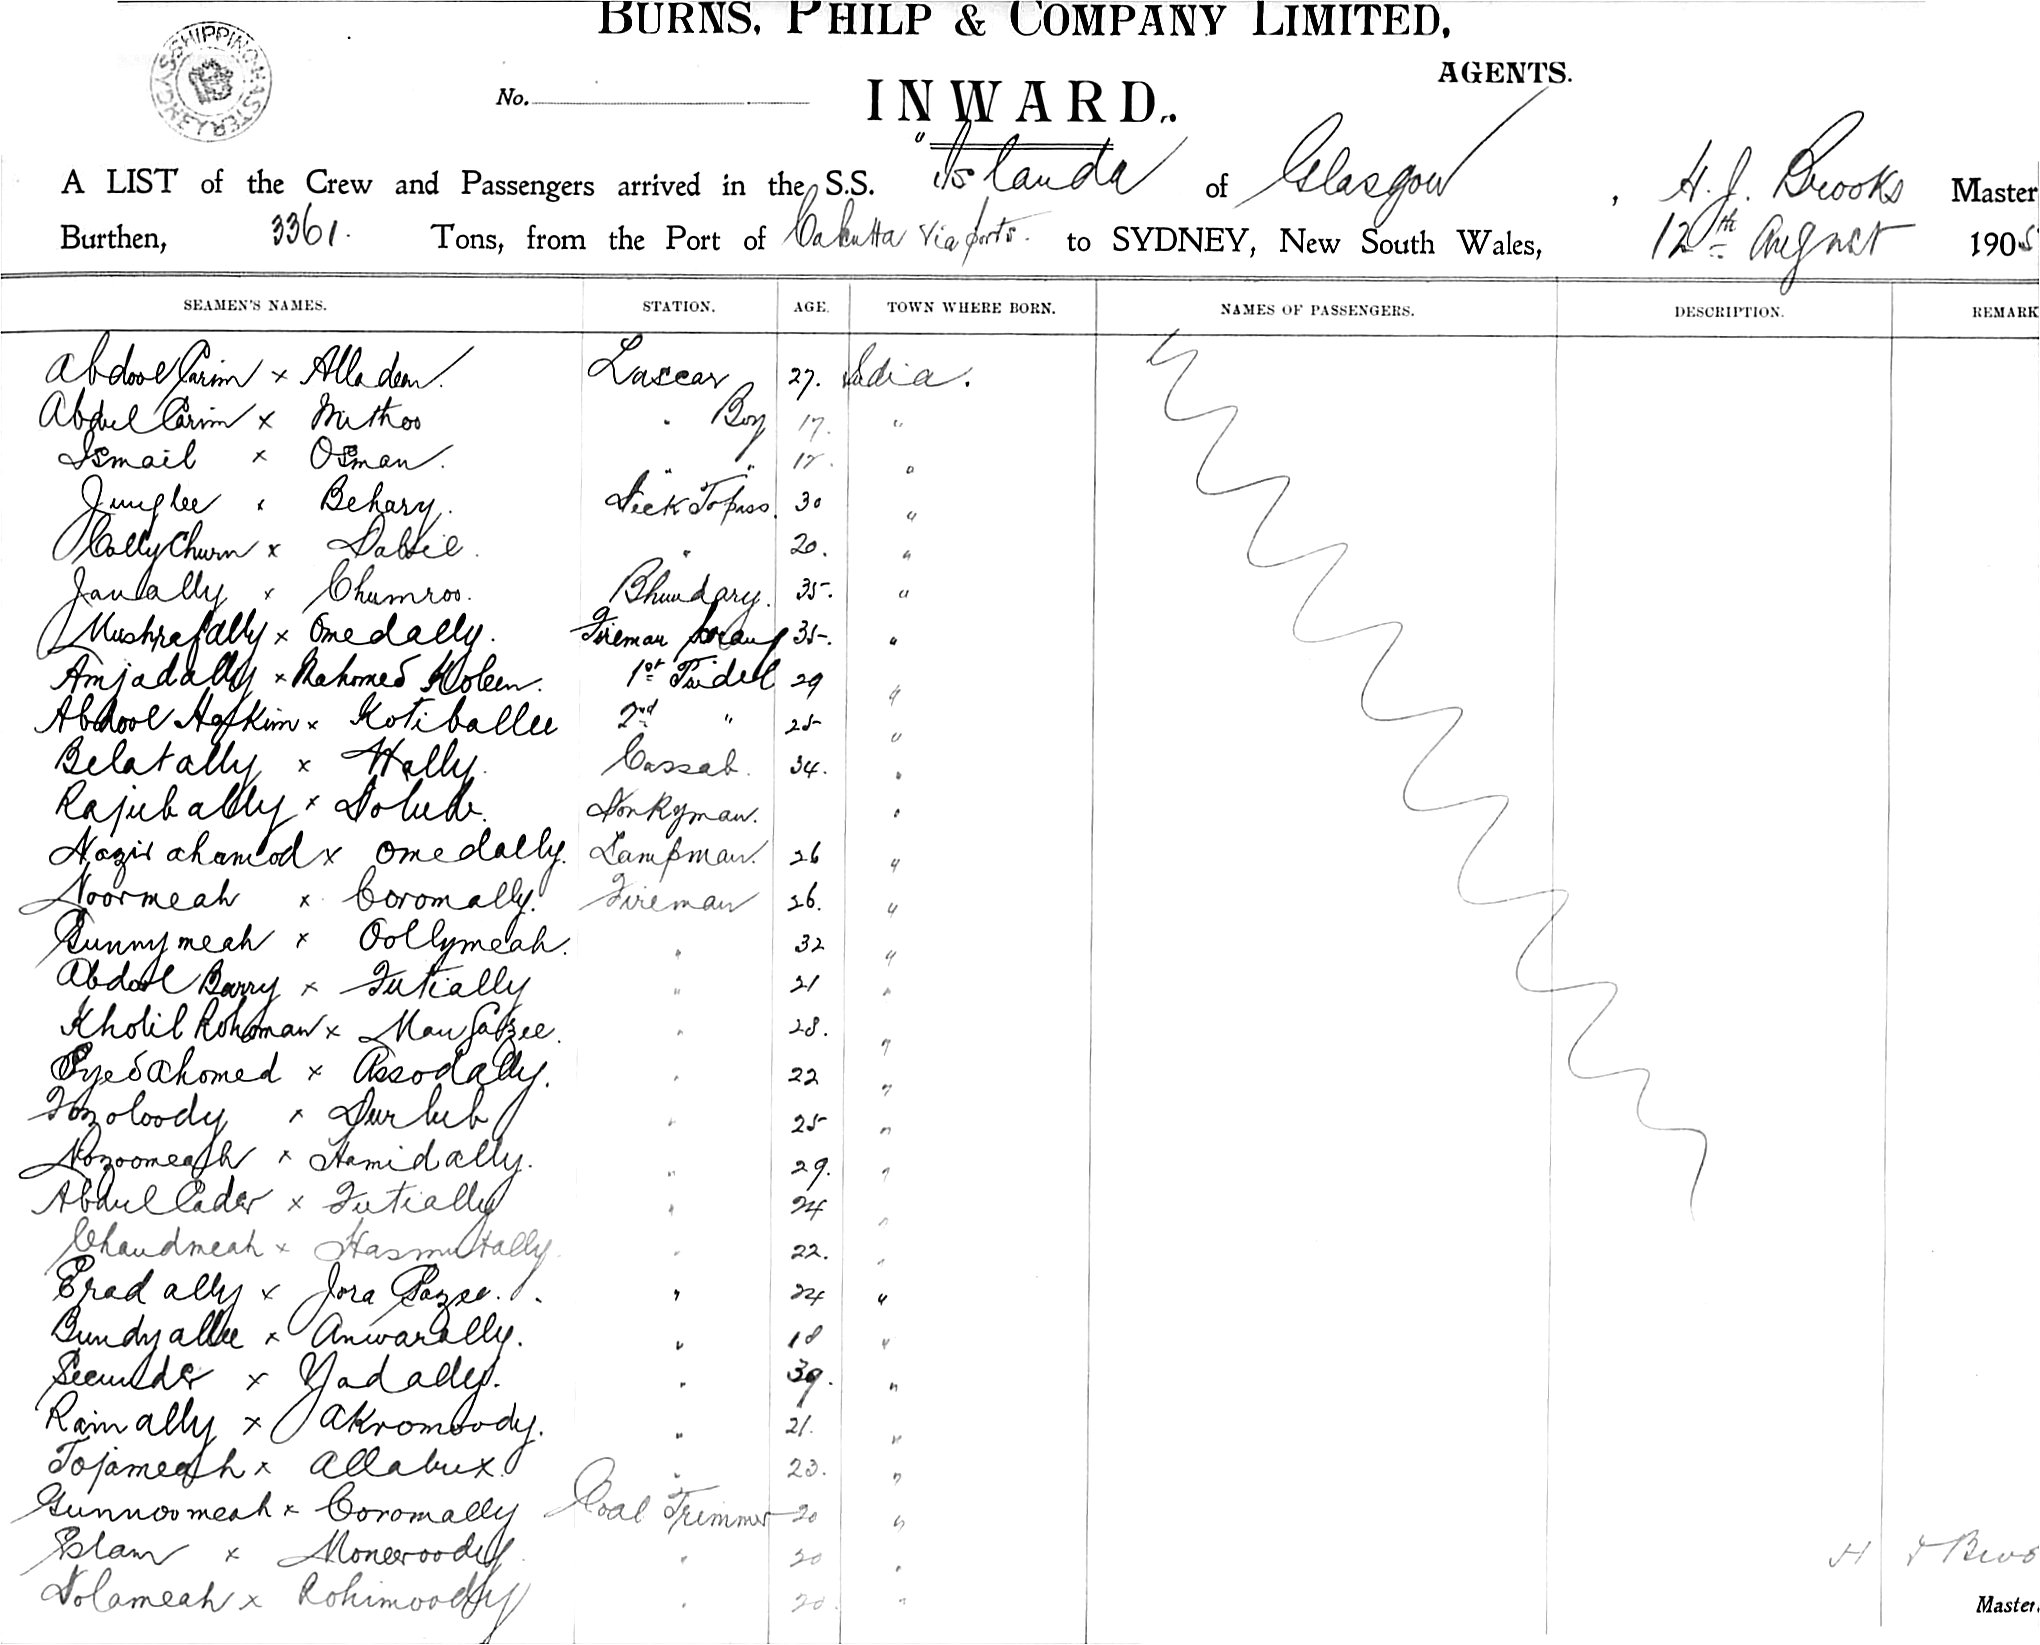 BURNS, PHILP & COMPANY LIMITED,
SHIPPING MASTER SYDNEY
AGENTS.
No.
INWARD.
A LIST of the Crew and Passengers arrived in the S.S. "Islanda of Glasgow, H. J. Brooks Master
Burthen, 3361. Tons, from the Port of Calcutta via ports. to SYDNEY, New South Wales, 12th August 1905
SEAMEN'S NAMES. STATION. AGE. TOWN WHERE BORN. NAMES OF PASSENGERS. DESCRIPTION. REMARK
Abdool Carim x Alladeen. Lascar 27. India.
Abdul Carim x Mithoo " Boy 17. "
Ismail x Osman. " " "
Junglee x Behary. Deck Topass. 30 "
Cally Churn x " 20. "
Janally x Chumroo. Bhundary. 35. "
Mushrafally x Omedally. Fireman Serang 35. "
Amjadally x Mahomed 1st Tindel 29 "
Abdool x 2nd " 25 "
Belatally x Cassab. 34. "
Rajubally x Donkyman. "
Nazir ahamod x Omedally. Lampman. 26 "
Noormeah x Coromally. Fireman 26. "
Sunnymeah x Oollymeah. " 32 "
Abdool Barry x Futially " 21 "
Kholil Rohoman x " 28. "
Syed Ahomed x Assodally. " 22 "
Fozoloody x Durlub " 25 "
x Hamidally. " 29. "
Abdul Cader x Futially " 24 "
Chandmeah x Hasmutally. " 22. "
Erad ally x Jora Gazee. " 24 "
Bundyallee x Anwarally. " 18 "
Secunder x Yadally. " 39. "
Rainally x Akromoody. " 21. "
Tojameah x Allabux. " 23. "
Gunnoomeah x Coromally Coal Trimmer 20 "
Eslam x Moneeroody " 20 "
Dolameah x Rohimoody " 20 "
H J Broo
Master.